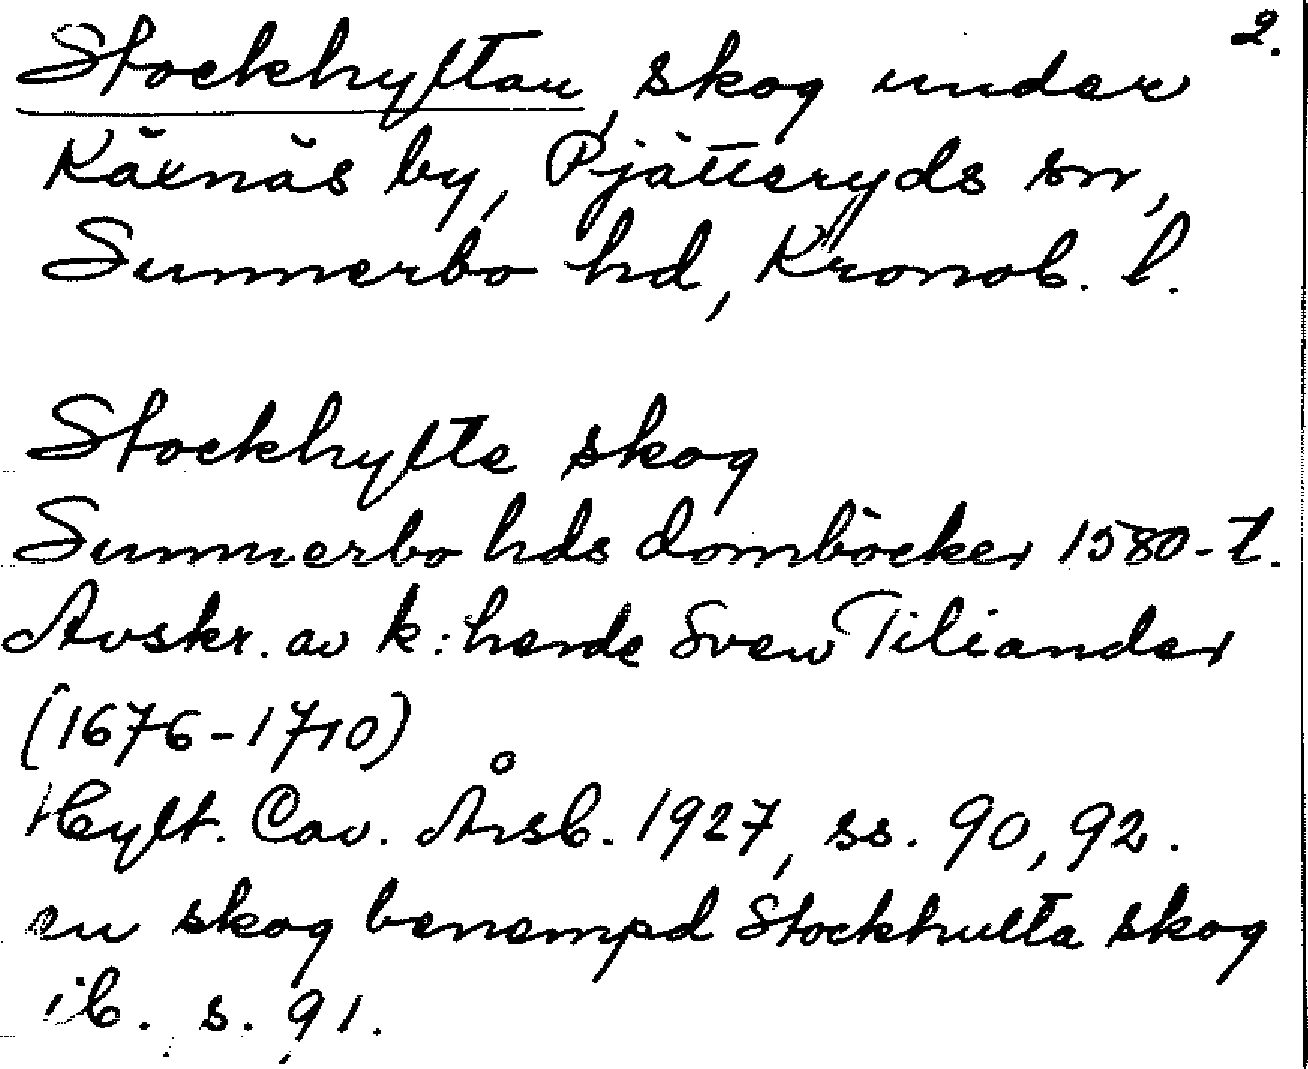 2.
Stockhyltan, skog under
Käxnäs by, Pjätteryds sn,
Sunnerbo hd, Kronob. l.
Stockhylte skog
Sunnerbo hds domböcker 1580-t.
Avskr. av k:herde Sven Tiliander
(1676-1710)
Hylt. Cav. Årsb. 1927, ss. 90, 92.
en skog benempd Stockhulta skog
ib. s. 91.